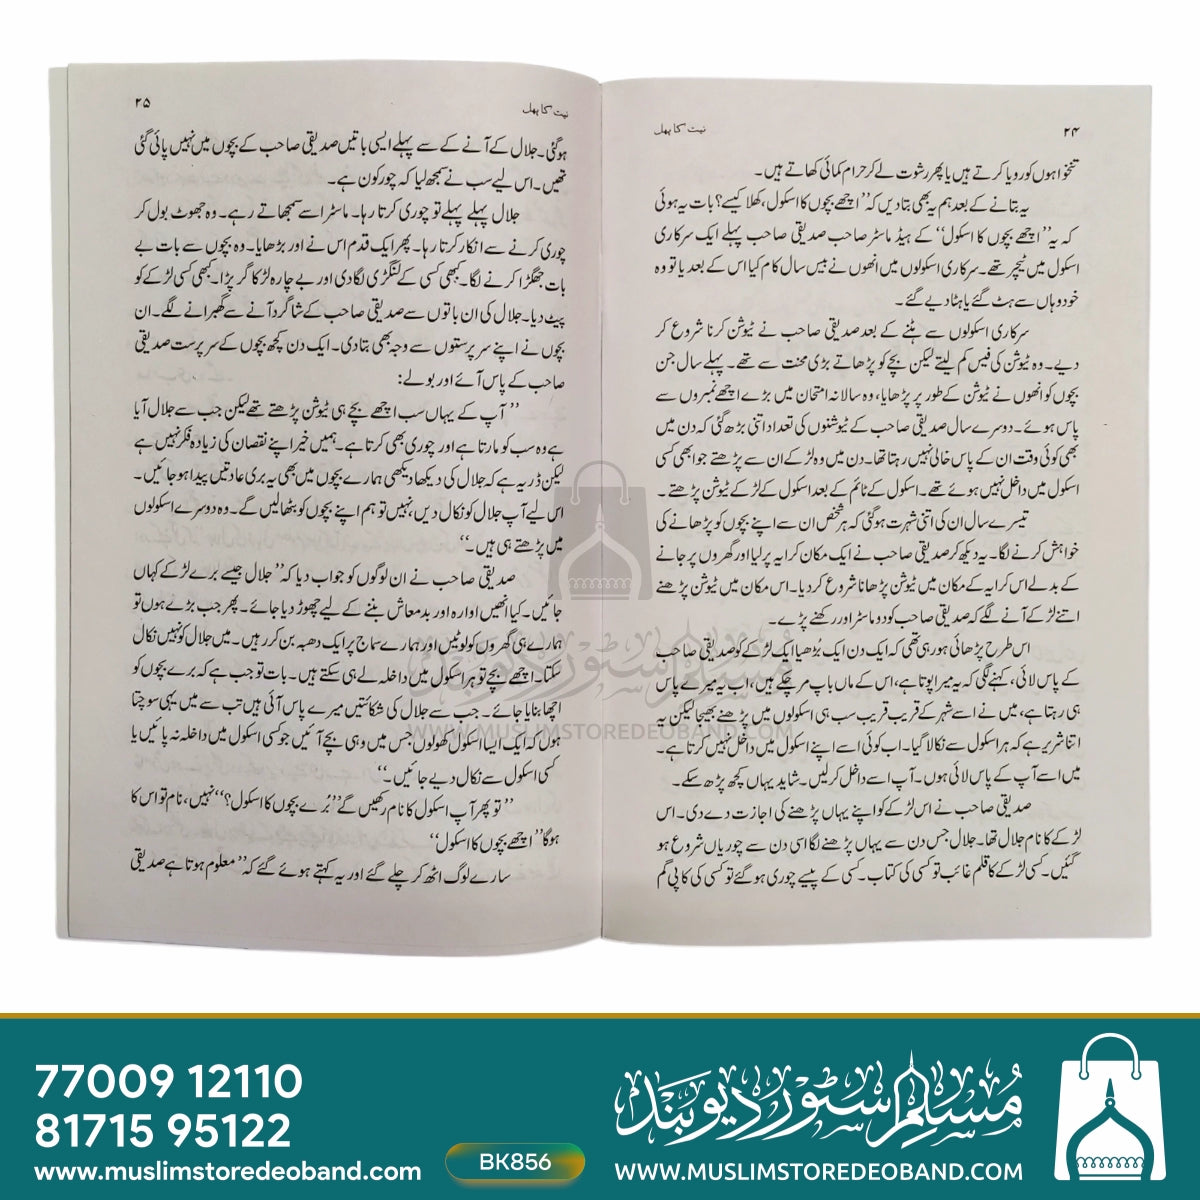 ۲۴
نیت کا پھل
تنخواہوں کو رویا کرتے ہیں یا پھر رشوت لے کر حرام کمائی کھاتے ہیں۔
یہ بتانے کے بعد ہم یہ بھی بتا دیں کہ ’’اچھے بچوں کا اسکول، کھلا کیسے؟ بات یہ ہوئی
کہ یہ ’’اچھے بچوں کا اسکول‘‘ کے ہیڈ ماسٹر صاحب صدیقی صاحب پہلے ایک سرکاری
اسکول میں ٹیچر تھے۔ سرکاری اسکولوں میں انھوں نے بیس سال کام کیا اس کے بعد یا تو وہ
خود وہاں سے ہٹ گئے یا ہٹا دیے گئے۔
سرکاری اسکولوں سے ہٹنے کے بعد صدیقی صاحب نے ٹیوشن کرنا شروع کر
دیے۔ وہ ٹیوشن کی فیس کم لیتے لیکن بچے کو پڑھاتے بڑی محنت سے تھے۔ پہلے سال جن
بچوں کو انھوں نے ٹیوشن کے طور پر پڑھایا، وہ سالانہ امتحان میں بڑے اچھے نمبروں سے
پاس ہوئے۔ دوسرے سال صدیقی صاحب کے ٹیوشنوں کی تعداد اتنی بڑھ گئی کہ دن میں
بھی کوئی وقت ان کے پاس خالی نہیں رہتا تھا۔ دن میں وہ لڑکے ان سے پڑھتے جو ابھی کسی
اسکول میں داخل نہیں ہوئے تھے۔ اسکول کے ٹائم کے بعد اسکول کے لڑکے ٹیوشن پڑھتے۔
تیسرے سال ان کی اتنی شہرت ہوگئی کہ ہر شخص ان سے اپنے بچوں کو پڑھانے کی
خواہش کرنے لگا۔ یہ دیکھ کر صدیقی صاحب نے ایک مکان کرایہ پر لیا اور گھروں پر جانے
کے بدلے اس کرایہ کے مکان میں ٹیوشن پڑھانا شروع کر دیا۔ اس مکان میں ٹیوشن پڑھنے
اتنے لڑکے آنے لگے کہ صدیقی صاحب کو دو ماسٹر اور رکھنے پڑے۔
اس طرح پڑھائی ہو رہی تھی کہ ایک دن ایک بڑھیا ایک لڑکے کو صدیقی صاحب
کے پاس لائی، کہنے لگی کہ یہ میرا پوتا ہے، اس کے ماں باپ مر چکے ہیں، اب یہ میرے پاس
ہی رہتا ہے، میں نے اسے شہر کے قریب قریب سب ہی اسکولوں میں پڑھنے بھیجا لیکن یہ
اتنا شریر ہے کہ ہر اسکول سے نکالا گیا۔ اب کوئی اسے اپنے اسکول میں داخل نہیں کرتا ہے۔
میں اسے آپ کے پاس لائی ہوں۔ آپ اسے داخل کرلیں۔ شاید یہاں کچھ پڑھ سکے۔
صدیقی صاحب نے اس لڑکے کو اپنے یہاں پڑھنے کی اجازت دے دی۔ اس
لڑکے کا نام جلال تھا۔ جلال جس دن سے یہاں پڑھنے لگا اسی دن سے چوریاں شروع ہو
گئیں۔ کسی لڑکے کا قلم غائب تو کسی کی کتاب۔ کسی کے پیسے چوری ہو گئے تو کسی کی کاپی گم
نیت کا پھل
۲۵
ہوگئی۔ جلال کے آنے کے سے پہلے ایسی باتیں صدیقی صاحب کے بچوں میں نہیں پائی گئی
تھیں۔ اس لیے سب نے سمجھ لیا کہ چور کون ہے۔
جلال پہلے پہلے تو چوری کرتا رہا۔ ماسٹر اسے سمجھاتے رہے۔ وہ جھوٹ بول کر
چوری کرنے سے انکار کرتا رہا۔ پھر ایک قدم اس نے اور بڑھایا۔ وہ بچوں سے بات بے
بات جھگڑا کرنے لگا۔ کبھی کسی کے لنگڑی لگا دی اور بے چارہ لڑکا گر پڑا۔ کبھی کسی لڑکے کو
پیٹ دیا۔ جلال کی ان باتوں سے صدیقی صاحب کے شاگرد آنے سے گھبرانے لگے۔ ان
بچوں نے اپنے سرپرستوں سے وجہ بھی بتا دی۔ ایک دن کچھ بچوں کے سرپرست صدیقی
صاحب کے پاس آئے اور بولے:
’’آپ کے یہاں سب اچھے بچے ہی ٹیوشن پڑھتے تھے لیکن جب سے جلال آیا
ہے وہ سب کو مارتا ہے اور چوری بھی کرتا ہے۔ ہمیں خیر اپنے نقصان کی زیادہ فکر نہیں ہے
لیکن ڈر یہ ہے کہ جلال کی دیکھا دیکھی ہمارے بچوں میں بھی یہ بری عادتیں پیدا ہو جائیں۔
اس لیے آپ جلال کو نکال دیں، نہیں تو ہم اپنے بچوں کو بٹھا لیں گے۔ وہ دوسرے اسکولوں
میں پڑھتے ہی ہیں۔‘‘
صدیقی صاحب نے ان لوگوں کو جواب دیا کہ ’’جلال جیسے برے لڑکے کہاں
جائیں۔ کیا انھیں اوارہ اور بدمعاش بننے کے لیے چھوڑ دیا جائے۔ پھر جب بڑے ہوں تو
ہمارے ہی گھروں کو لوٹیں اور ہمارے سماج پر ایک دھبہ بن کر رہیں۔ میں جلال کو نہیں نکال
سکتا۔ اچھے بچے تو ہر اسکول میں داخلہ لے ہی سکتے ہیں۔ بات تو جب ہے کہ برے بچوں کو
اچھا بنایا جائے۔ جب سے جلال کی شکائتیں میرے پاس آئی ہیں تب سے میں یہی سوچتا
ہوں کہ ایک ایسا اسکول کھولوں جس میں وہی بچے آئیں جو کسی اسکول میں داخلہ نہ پائیں یا
کسی اسکول سے نکال دیے جائیں۔‘‘
’’تو پھر آپ اسکول کا نام رکھیں گے ’’بُرے بچوں کا اسکول؟‘‘ ’’نہیں، نام تو اس کا
ہوگا ’’اچھے بچوں کا اسکول‘‘
سارے لوگ اٹھ کر چلے گئے اور یہ کہتے ہوئے گئے کہ ’’معلوم ہوتا ہے صدیقی
مسلم سٹور دیوبند
WWW.MUSLIMSTOREDEOBAND.COM
77009 12110
81715 95122
www.muslimstoredeoband.com
BK856
مسلم سٹور دیوبند
WWW.MUSLIMSTOREDEOBAND.COM